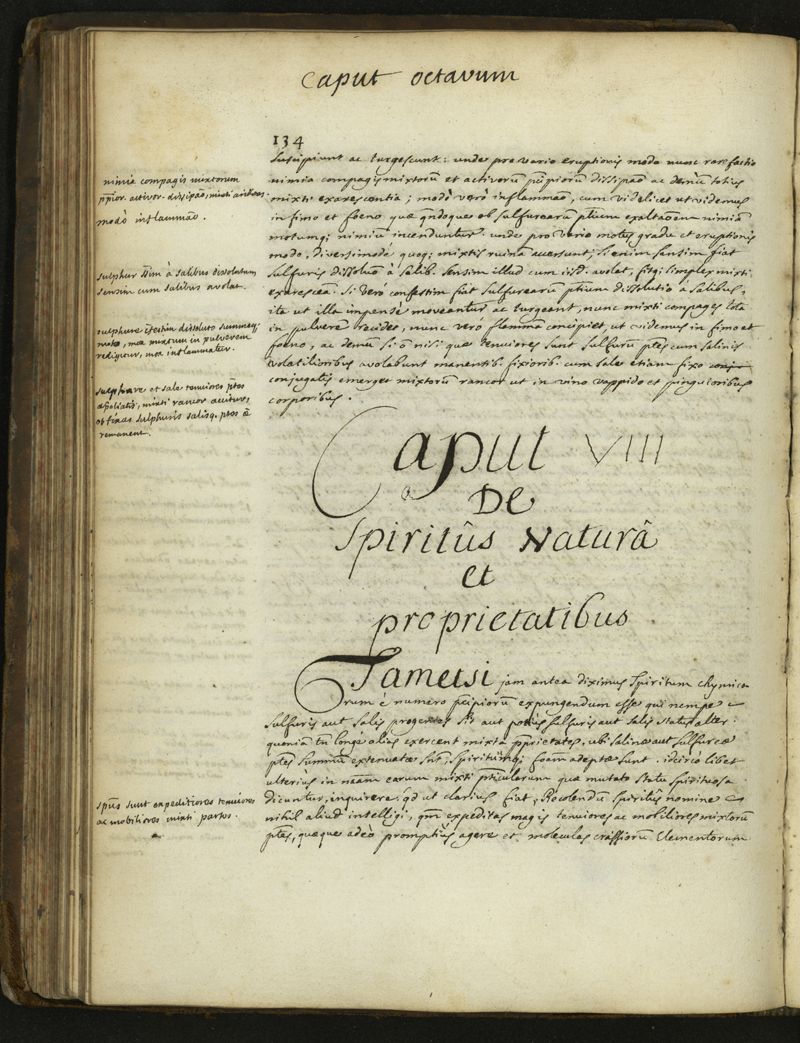 Caput octavum
134
suscipiunt ac turgescunt: unde pro vario eruptionis modo nunc rarefactio
nimia compagis mixtorū et activorū pčipiorū dissipāo ac demū totius
mixti exarescentia; modò verò inflammāo, cum videlicet ut videmus
in fimo et foeno quæ qndoque ob sulfurearū ptium exaltāoem nimiā
motumq; nimiū incenduntur. unde pro vario motus gradu et eruptionis
modo, diversimodè quoq; mixtis ruina accersunt, si enim sensim fiat
sulfuris dissolutio à salib. sensim illud cum iisd. avolat, fitq; simplex mixti
exarescēa. Si verò confestim fiat sulfurearū ptium dissolutio à salibus,
ita ut illa impensè moveantur ac turgeant, nunc mixti compages tota
in pulverē recidet, nunc verò flammā concipiet, ut videmus in fimo et
foeno, ac demū si ō nisi quæ tenuiores sunt sulfurū ptes cum salinis
volatilioribus avolabunt manentib. fixiorib. cum sale etiam fixo
conjugatis emerget mixtorū rancor ut in vino vappido et pinguioribus
corporibus.
nimia compagis mixtorum
ppior. activor. dissipāo, mixti
modò inflammāo.
sulphur à salibus dissolutum
sensim cum salibus avolat.
sulphure cfestim dissoluto summeq;
moto, mox mixtum in pulverem
redigitur, mox inflammatur.
sulphure et sale tenuiores ptes
mixti rancor acritur,
ob fixas sulphuris salisq. ptes
remanent.
Caput VIII
De
Spiritûs Naturâ
et
proprietatibus
Tametsi jam antea diximus spiritum chymico
rum è numero pčipiorū expungendum esse qui nempe
sulfuris aut salis progenies sit aut potius sulfuris aut salis status alter:
quoniā tn longè alias exercent mixta pprietates, ubi salinæ aut sulfureæ
ptes summū extenuatæ snt, spirituūmq; foam adeptæ sunt. idcirco libet
ulteriùs in naam earum mixti pticularum quæ mutato statu spirituosæ
dicuntur, inquirere. qd ut clarius fiat, Recolendū spiritûs nomine
nihil aliud intelligi, qm expeditas magis tenuiores ac mobiliores mixtorū
ptes, quæque adeò promptius agere et moleculas crassiorū Elementorum
spus sunt expeditiores tenuiores
ac mobiliores mixti partes.